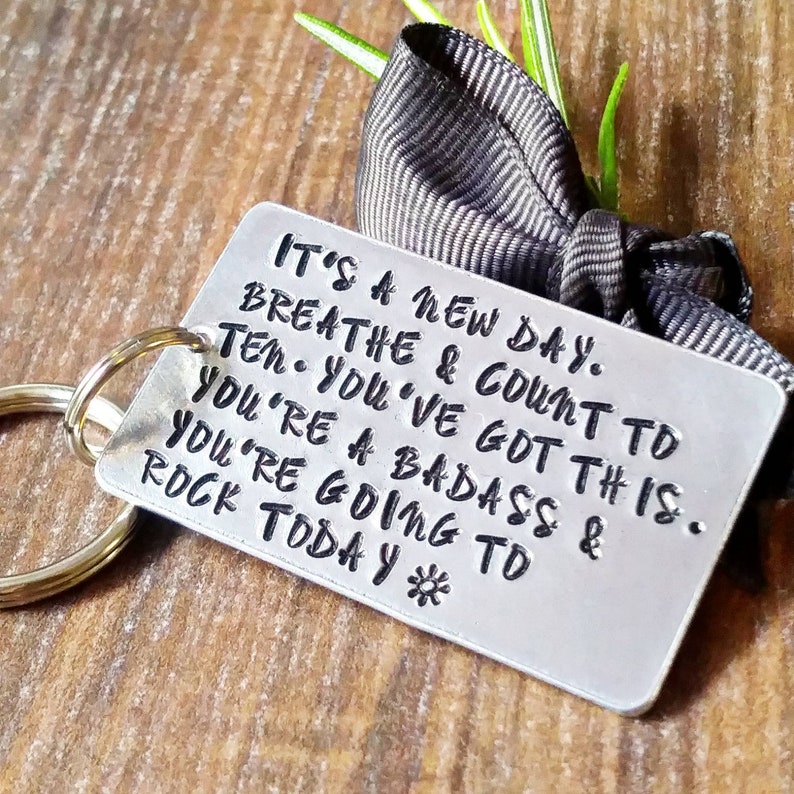 IT'S A NEW DAY.
BREATHE & COUNT TO
TEN. YOU'VE GOT THIS.
YOU'RE A BADASS &
YOU'RE GOING TO
ROCK TODAY